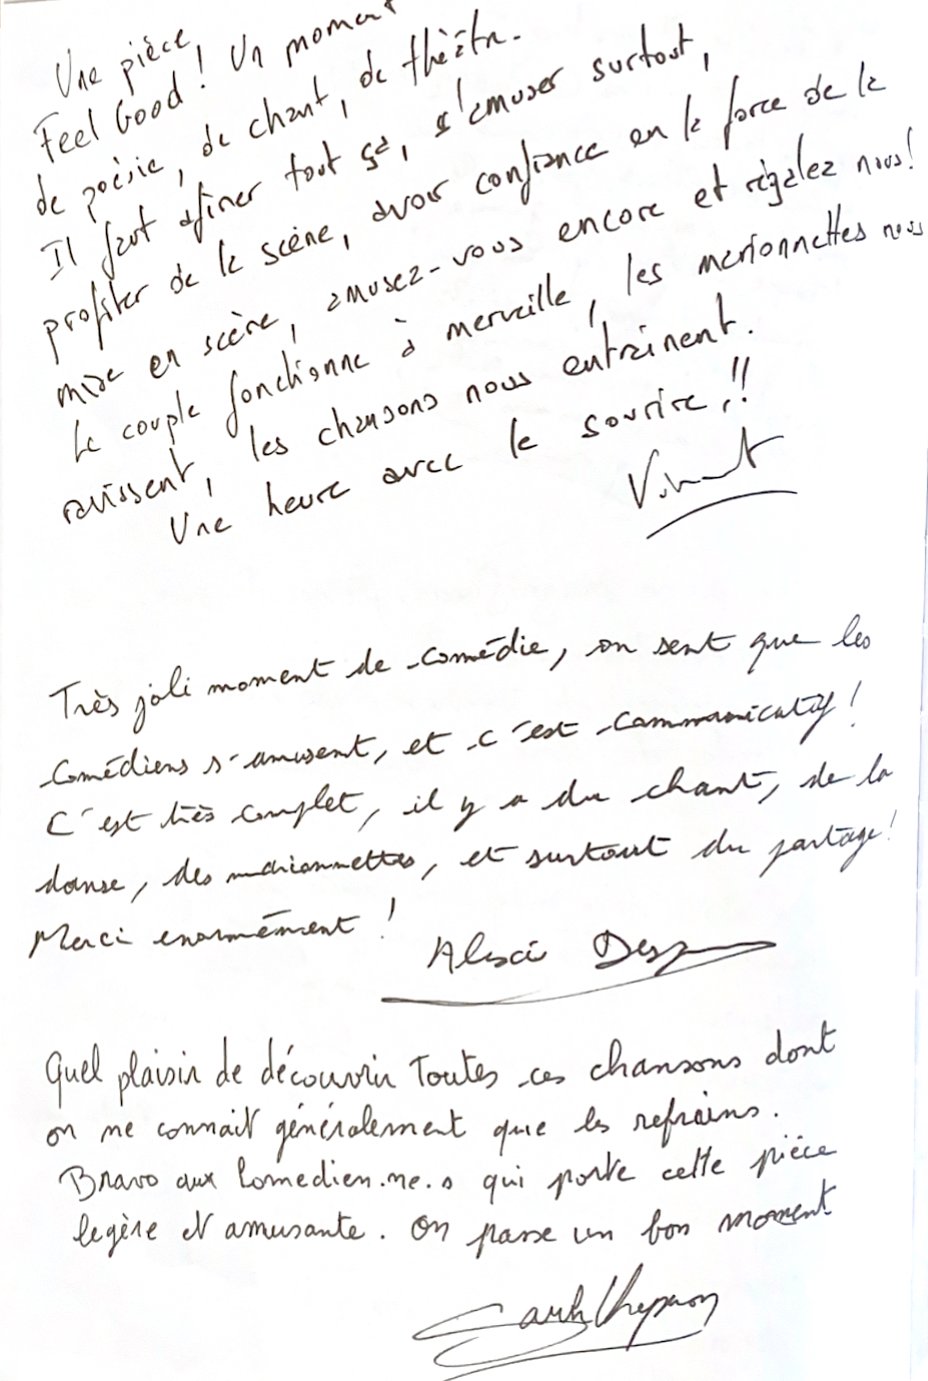 Une pièce
Feel Good ! Un moment
de poésie, de chant, de théâtre.
Il faut afiner tout ça, s'amuser surtout,
profiter de la scène, avoir confiance en la force de la
mise en scène, amusez-vous encore et régalez nous !
Le couple fonctionne à merveille, les marionnettes nous
ravissent, les chansons nous entraînent.
Une heure avec le sourire !!
Vincent
Très joli moment de comédie, on sent que les
comédiens s'amusent, et c'est communicatif !
C'est très complet, il y a du chant, de la
danse, des marionnettes, et surtout du partage !
Merci énormément !
Quel plaisir de découvrir Toutes ces chansons dont
on ne connait généralement que les refrains.
Bravo aux Comedien.ne.s qui porte cette pièce
legère et amusante. On passe un bon moment